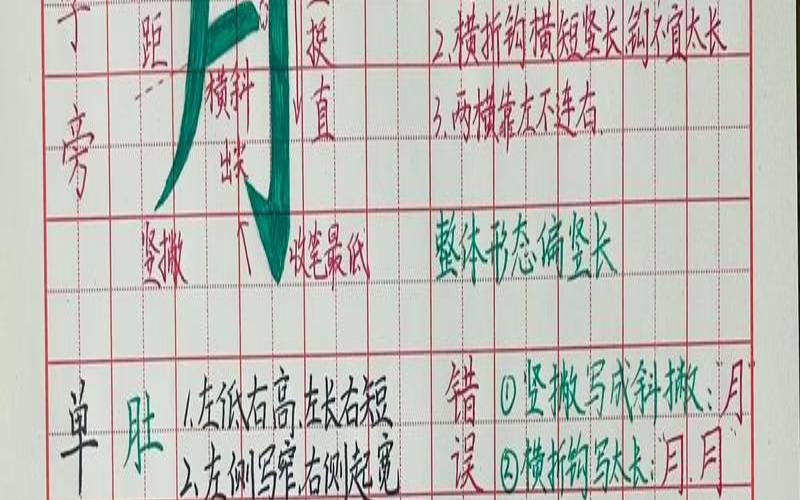 字
旁
距
月
横斜
出尖
挺
直
竖撇
收笔最低
2.横折钩横短竖长,钩不宜太长
3.两横靠左不连右
整体形态偏竖长
单
肚
1.左低右高,左长右短
2.左侧写窄,右侧起宽
错
误
①竖撇写成斜撇:"月"
②横折钩写太长:"月.月"